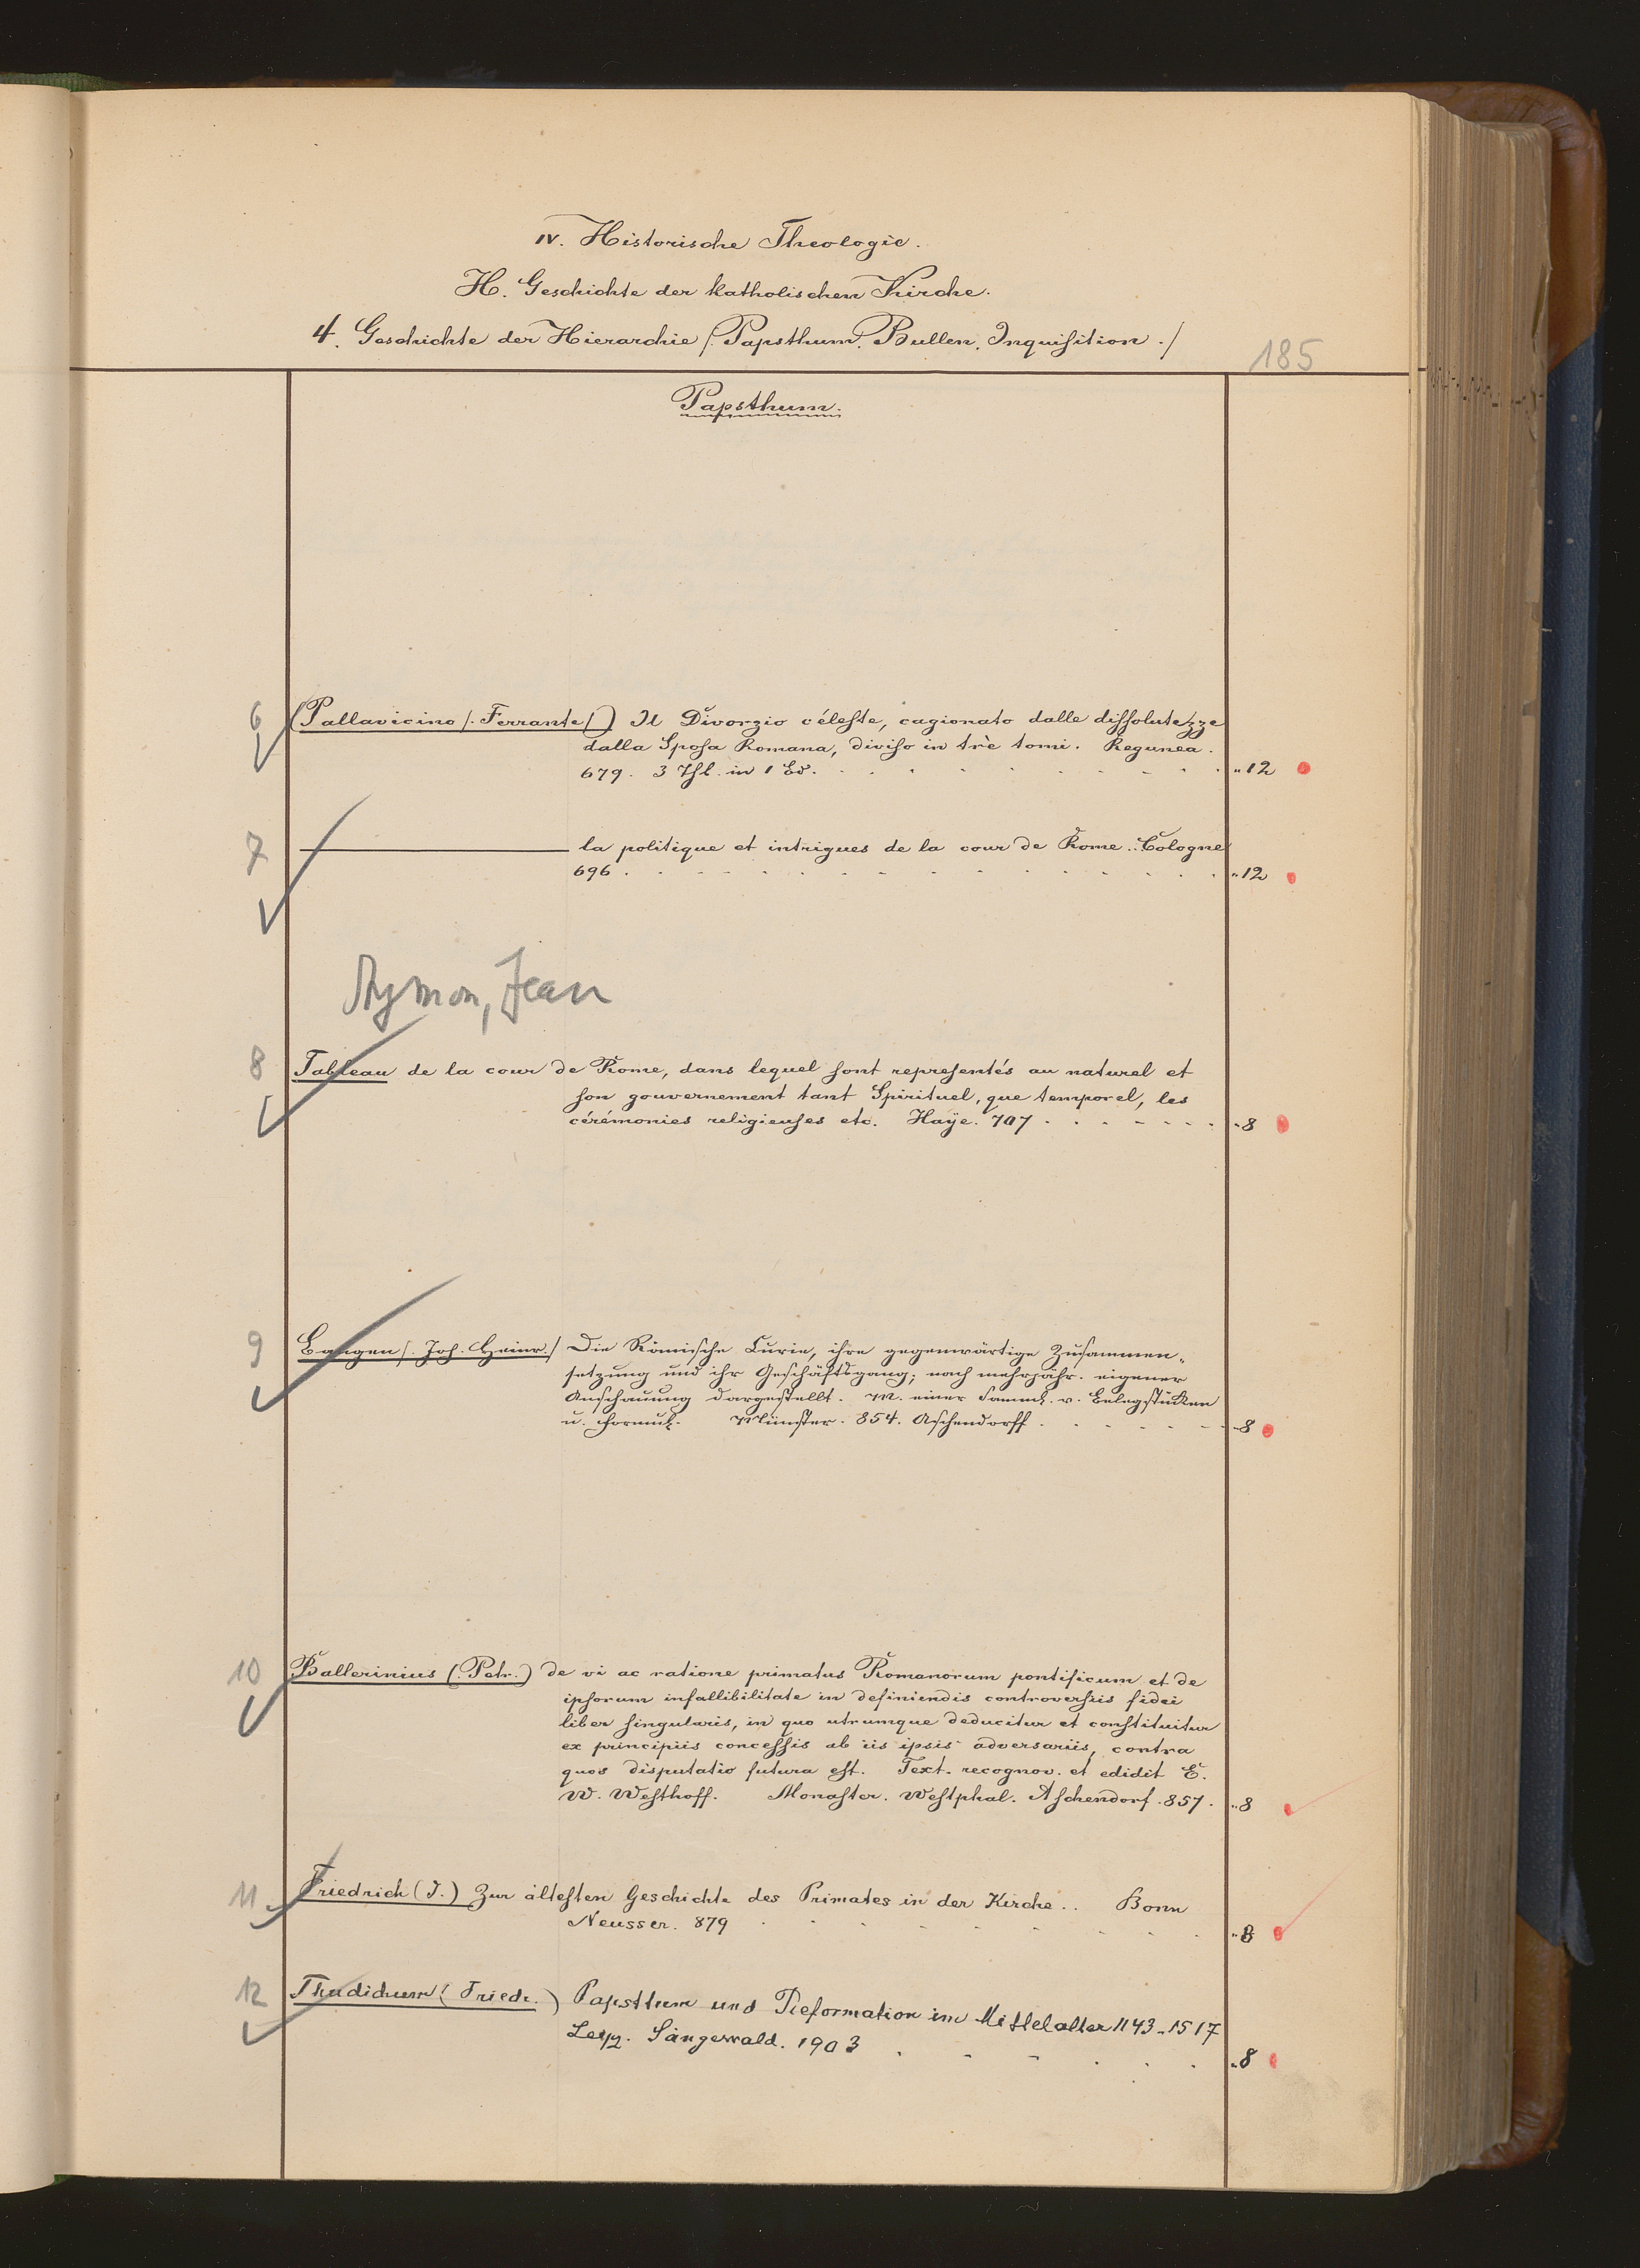 IV. Historische Theologie.
H. Geschichte der katholischen Kirche.
4. Geschichte der Hierarchie /: Papsthum, Bullen, Inquisition :/
185
Papsthum.
6 (Pallavicino /: Ferrante /) Il Divorzio céleste, cagionato dalle dissolutezze
dalla Sposa Romana, diviso in trè tomi. Regunea.
679. 3 Thl. in 1 Bd. „12
7 ——— la politique et intrigues de la cour de Rome.. Cologne
696. „12
Aymon, Jean
8 Tableau de la cour de Rome, dans lequel sont representés au naturel et
son gouvernement tant Spirituel, que temporel, les
cérémonies religieuses etc. Haÿe. 707 „8
9 Bangen /: Joh. Heinr. / Die Römische Curie, ihre gegenwärtige Zusammen-
setzung und ihr Geschäftsgang; nach mehrjähr. eigener
Anschauung dargestellt. M. einer Samml. v. Belegstücken
u. Formul. Münster. 854. Aschendorff. „8
10 Ballerinius (: Petr.) de vi ac ratione primatus Romanorum pontificum et de
ipsorum infallibilitate in definiendis controversiis fidei
liber singularis, in quo utrumque deducitur et constituitur
ex principiis concessis ab iis ipsis adversariis, contra
quos disputatio futura est. Text. recognov. et edidit E.
W. Westhoff. Monaster. Westphal. Aschendorf. 857. „8
11 Friedrich (J.) Zur ältesten Geschichte des Primates in der Kirche.. Bonn
Neusser. 879 „8
12 Thudichum (Friedr.) Papsttum und Reformation im Mittelalter 1143-1517
Leipz. Sängewald. 1903 „8